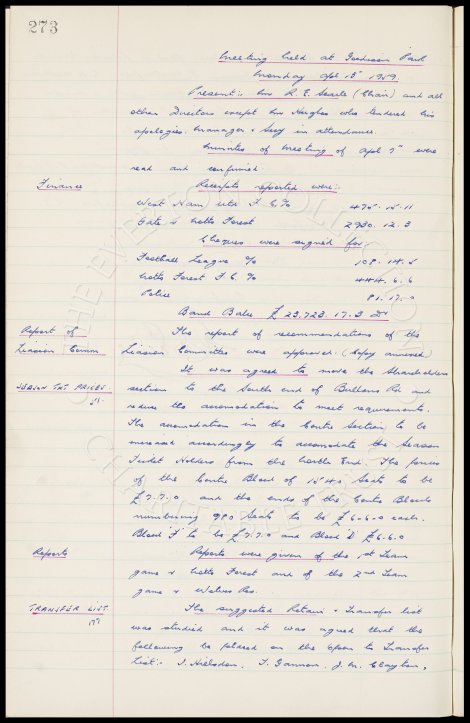 273
Meeting held at Goodison Park
Monday Apl 13th 1959.
Present:- Mr R. E. Searle (Chair) and all
other Directors except Mr Hughes who tendered his
apologies. Manager & Secy in attendance.
Minutes of Meeting of Apl 7th were
read and confirmed.
Finance
Receipts reported were:-
West Ham Utd F.C. %
475. 15. 11
Gate v Notts Forest
2930. 12. 3
Cheques were signed for
Football League %
108. 14. 5
Notts Forest F.C. %
444. 6. 6
Police
81. 17. 0
Bank Balce £ 23,723. 17. 3 Dr
Report of
Liaison Comm
The report of recommendations of the
Liaison Committee were approved. (Copy annexed)
SEASON TKT PRICES
It was agreed to move the Shareholders
section to the South end of Bullens Rd and
reduce the accomodation to meet requirements.
The accomodation in the Centre Section to be
increased accordingly to accomodate the Season
Ticket Holders from the North End. The prices
of the Centre Block of 1540 seats to be
£7.7.0 and the ends of the Centre Blocks
numbering 980 seats to be £6.6.0 each.
Block 'F' to be £7.7.0 and Block D £6.6.0
Reports
Reports were given of the 1st Team
game v Notts Forest and of the 2nd Team
game v Wolves Res.
TRANSFER LIST.
The suggested Retain & Transfer list
was studied and it was agreed that the
following be placed on the Open to Transfer
List:- J. Nielsden. T. Gannon. J. M. Clayton.
THE EVERTON COLLECTION
CHARITABLE TRUST